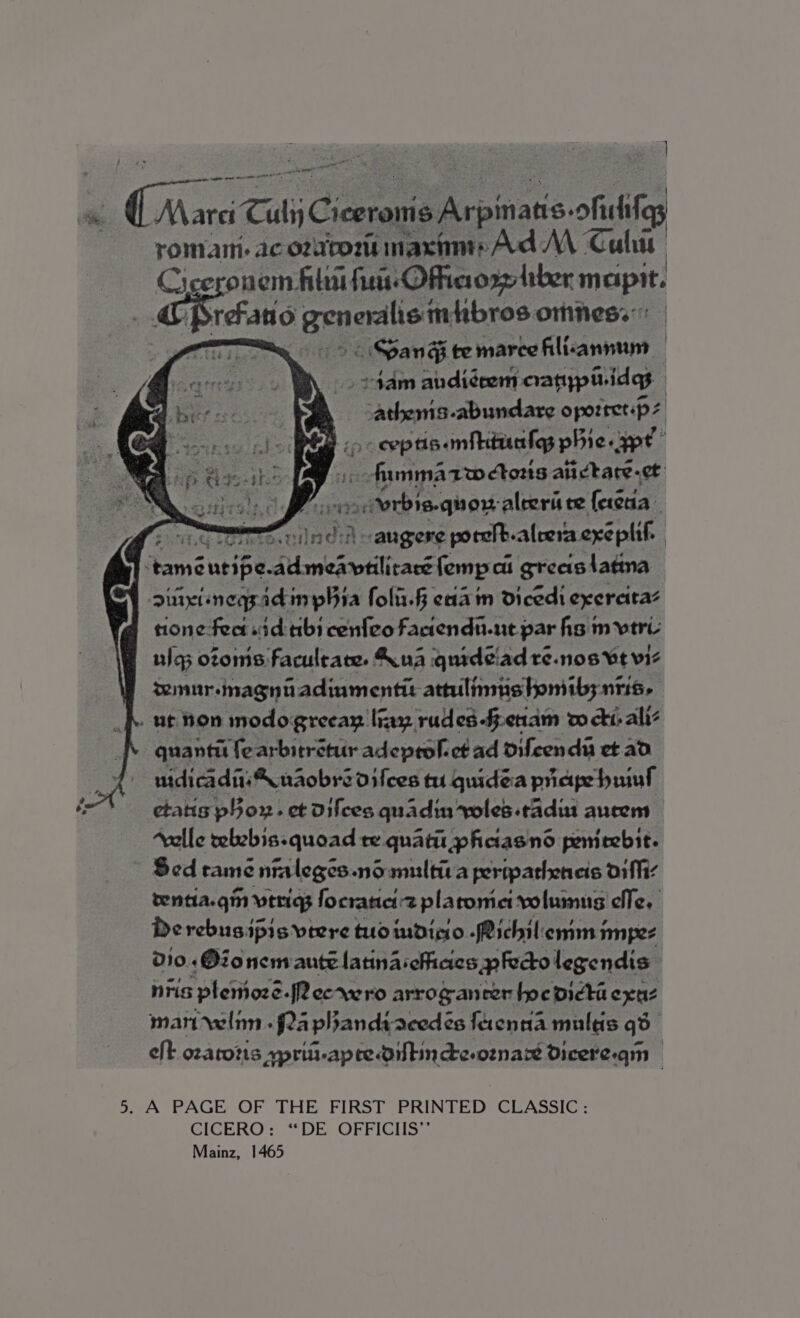 Marci Tulij Ciceronis Arpinatis. ɔsulisqꝫ
romani. ac oratorū maximi. Ad M. Tulii
Ciceronem filiū suū. Officioꝝ liber incipit.
Prefatio generalis in libros omnes.
Quanqꝫ te marce fili. annum
iam audiētem cratippū. idqꝫ
athenis. abundare oportet. p̲⸗
ceptis. institutisqꝫ ph̄ie. ꝓpt̄
summā ⁊ doctoris auctatē. et
vrbis. quoꝝ alterū te sciētia
augere potest. altera exēplis.
tamē ut ip̄e. ad meā vtilitatē semp cū grecis latina
ɔiūxi. neqꝫ id in ph̄ia solū. sꝫ etiā in dicēdi exercita⸗
tione feci. id tibi censeo faciendū. ut par sis in vtri⸗
usqꝫ or̄onis facultate. Quā quidē ad rē. nos vt vi⸗
demur. magnū adiumentū attulimus hominibꝫ nr̄is.
ut non modo grecaꝝ lr̄aꝝ rudes. sꝫ etiam docti. ali⸗
quantū se arbitrētur adeptos. et ad discendū et ad
iudicādū. Quāobrē disces tu quidē a pn̄cipe huius
etatis ph̄oꝝ. et disces quādiu voles. tādiu autem
velle debebis. quoad te quātū ꝓficias nō penitebit.
Sed tamē nr̄a legēs. nō multū a peripatheticis diffi⸗
dentia. qm̄ vtriqꝫ socratici ⁊ platonici volumus esse.
De rebus ipis vtere tuo iudicio. Nichil enim impe⸗
dio. Or̄onem autē latinā. efficies ꝓfecto legendis
nr̄is pleniorē. Nec vero arroganter hoc dictū exti⸗
mari velim. Nā ph̄andi ɔcedēs scientiā multis. qd̄
est oratoris ꝓpriū. apte. distincte. ornatē dicere. qm̄
5. A PAGE OF THE FIRST PRINTED CLASSIC:
CICERO: “DE OFFICIIS”
Mainz, 1465